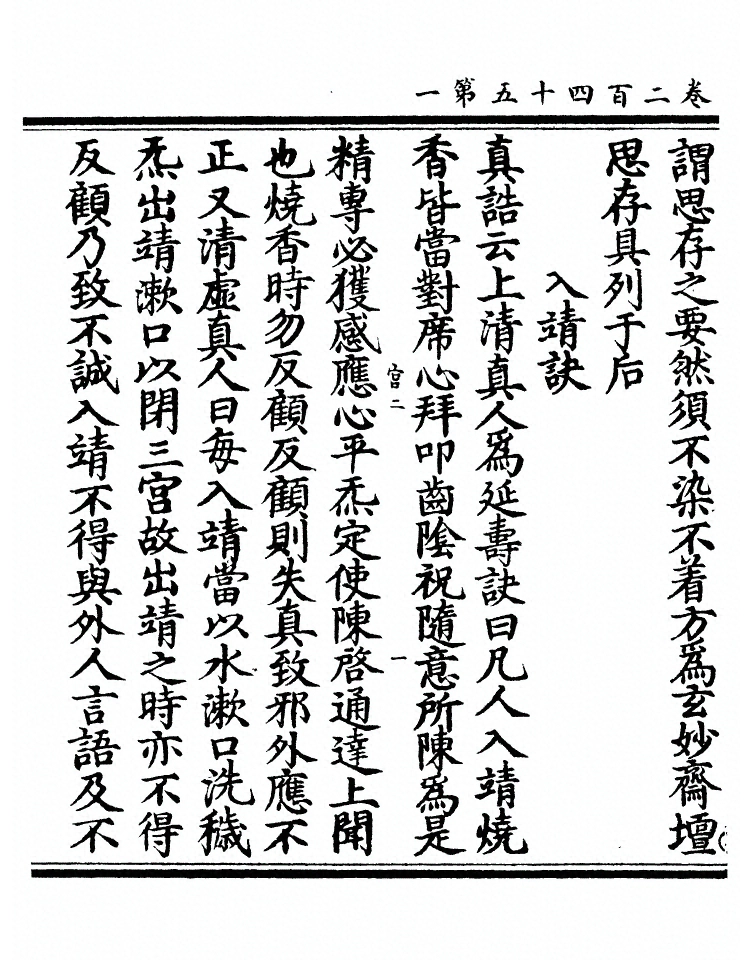 卷二百四十五第一
謂思存之要然須不染不着方爲玄妙齋壇
思存具列于后
入靖訣
真誥云上清真人爲延壽訣曰凡人入靖燒
香皆當對席心拜叩齒陰祝隨意所陳爲是
宫二
一
精專必獲感應心平炁定使陳啓通達上聞
也燒香時勿反顧反顧則失真致邪外應不
正又清虛真人曰每入靖當以水漱口洗穢
炁出靖漱口以閉三宮故出靖之時亦不得
反顧乃致不誠入靖不得與外人言語及不